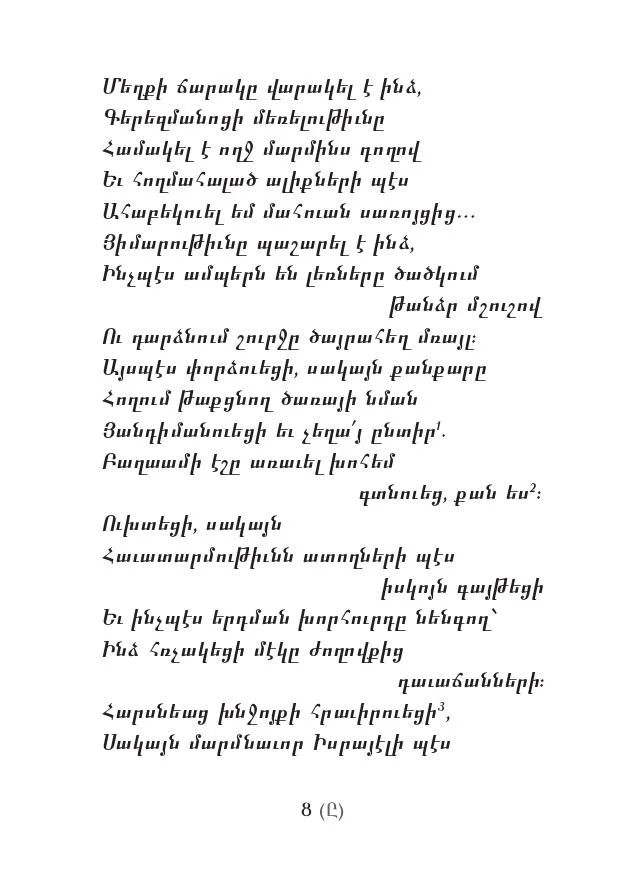 Մեղքի ճարակը վարակել է ինձ,
Գերեզմանոցի մեռելութիւնը
Համակել է ողջ մարմինս դողով
Եւ հողմահալած ալիքների պէս
Ահաբեկուել եմ մահուան սառոյցից…
Յիմարութիւնը պաշարել է ինձ,
Ինչպէս ամպերն են լեռները ծածկում
թանձր մշուշով
Ու դարձնում շուրջը ծայրահեղ մռայլ:
Այսպէս փորձուեցի, սակայն քանքարը
Հողում թաքցնող ծառայի նման
Յանդիմանուեցի եւ չեղա՛յ ընտիր¹.
Բաղաամի էշը առաւել խոհեմ
գտնուեց, քան ես²:
Ուխտեցի, սակայն
Հաւատարմութիւնն ատողների պէս
իսկոյն գայթեցի
Եւ ինչպէս երդման խորհուրդը նենգող՝
Ինձ հռչակեցի մէկը ժողովքից
դաւաճանների:
Հարսնեաց խնջոյքի հրաւիրուեցի³,
Սակայն մարմնաւոր Իսրայէլի պէս
8 (Ը)